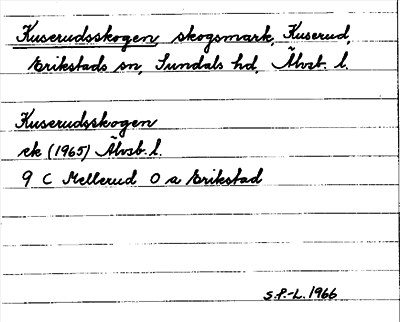 Kuserudsskogen, skogsmark, Kuserud,
Erikstads sn, Sundals hd, Älvsb. l.
Kuserudsskogen
ek (1965) Älvsb. l.
9 C Mellerud 0 a Erikstad
S.P.-L. 1966